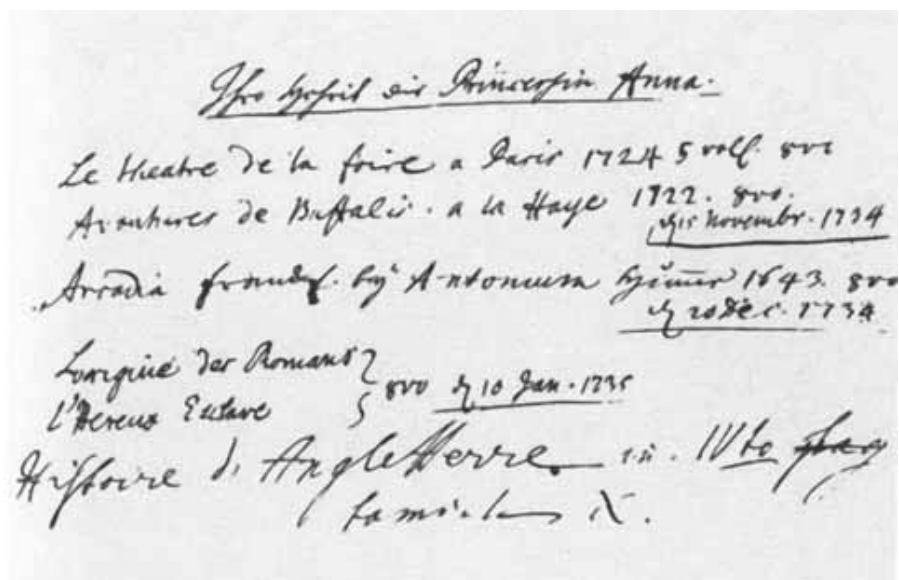 Ihro Hoheit die Princessin Anna.
Le theatre de la foire a Paris 1724 5 voll. 8vo
Avantures de Buffalis. a la Haye 1722. 8vo.
d 15 Novembr. 1734
Arcadia by Antonium 1643. 8vo
d 20 Dec. 1734
Lorigine der Romans
l'Hereux Esclave
8vo d 10 Jan. 1735
Histoire d'Angleterre in IVto
X.